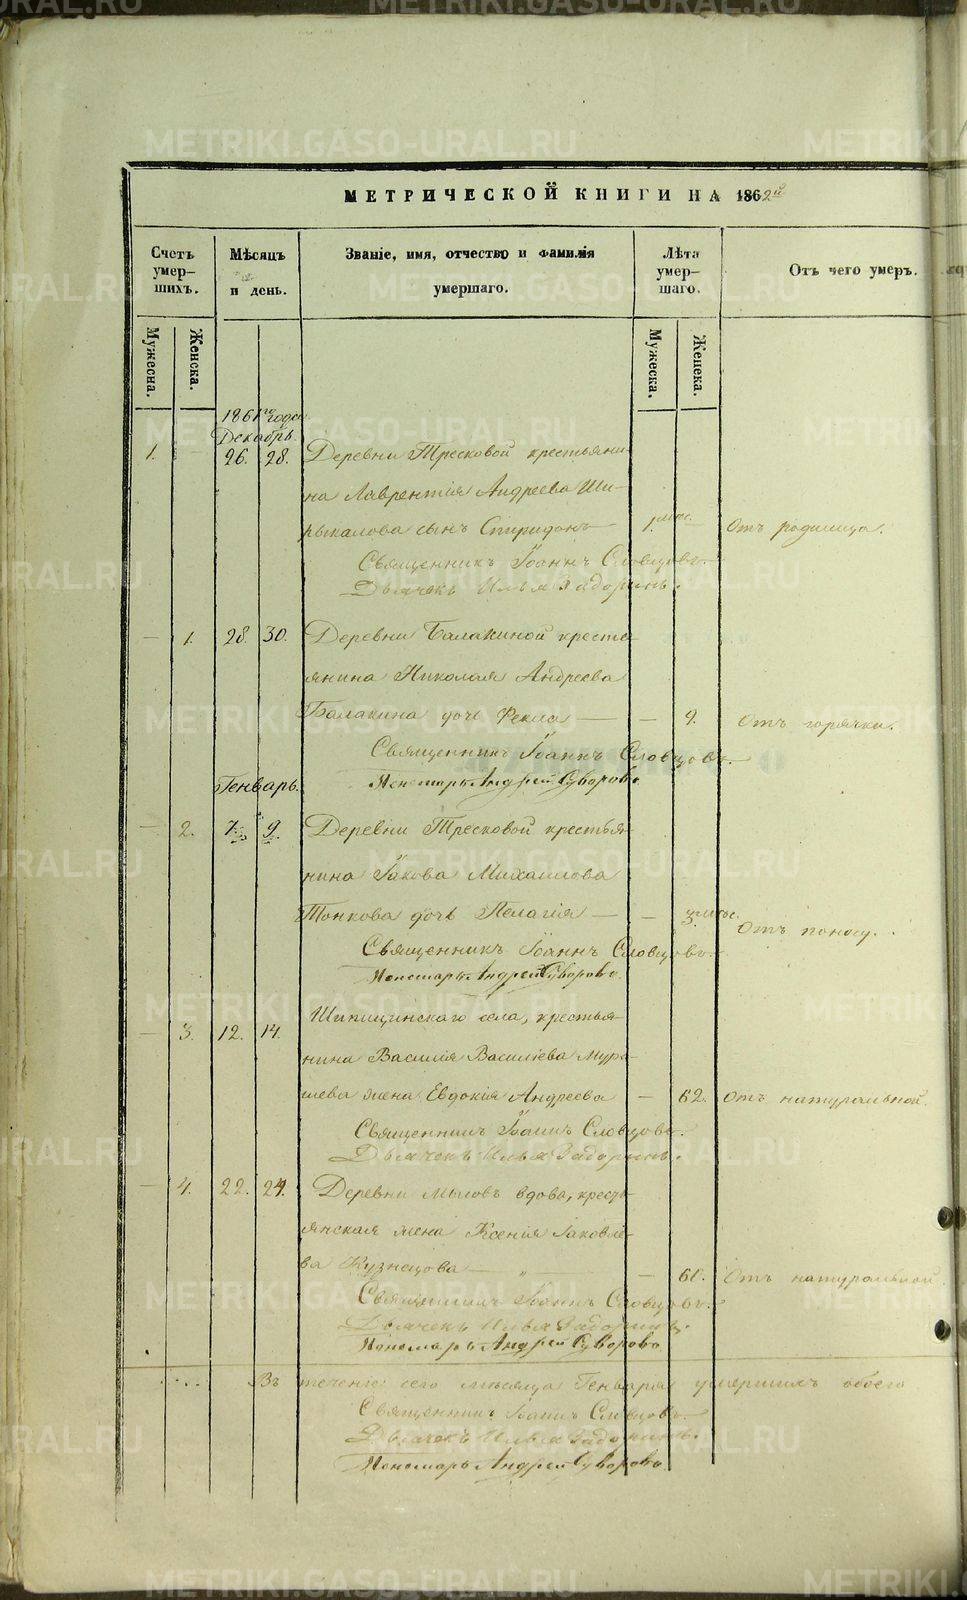 МЕТРИЧЕСКОЙ КНИГИ НА 1862й
Счетъ умер-
ших.
Мѣсяцъ
и день.
Званіе, имя, отчество и фамилія
умершаго.
Лѣта
умер-
шаго.
Отъ чего умеръ.
Мужеска.
Женска.
Мужеска.
Женска.
1861го года
Декабрь.
1. 26. 28. Деревни Тресковой крестьяни-
на Лаврентія Андреева Ши-
рыкалова сынъ Спиридонъ — 1. мѣс. Отъ родимца.
Священникъ Іоаннъ Словцовъ.
Дьячекъ Илья Задоринъ.
— 1. 28. 30. Деревни Балакиной кресть-
янина Николая Андреева
Балакина дочь Фекла — — 9. Отъ горячки.
Священникъ Іоаннъ Словцовъ.
Пономарь Андрей Суворовъ
Генварь.
— 2. 7. 9. Деревни Тресковой крестья-
нина Іакова Михаилова
Тонкова дочь Пелагія — — 3 мѣс. Отъ поносу.
Священникъ Іоаннъ Словцовъ.
Пономарь Андрей Суворовъ.
— 3. 12. 14. Шипицинскаго села, крестья-
нина Василія Василіева Мура-
шева жена Евдокія Андреева — 62. Отъ натуральной.
Священникъ Іоаннъ Словцовъ.
Дьячекъ Илья Задоринъ.
— 4. 22. 24. Деревни вдова, кресть-
янская жена Ксенія Іаковле-
ва Кузнецова — " — 60. Отъ натуральной.
Священникъ Іоаннъ Словцовъ.
Дьячекъ Илья Задоринъ.
Пономарь Андрей Суворовъ
Въ теченіе сего мѣсяца Генваря умершихъ обоего
Священникъ Іоаннъ Словцовъ
Дьячекъ Илья Задоринъ.
Пономарь Андрей Суворовъ
METRIKI.GASO-URAL.RU